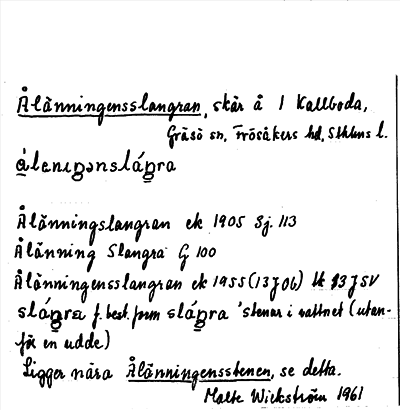 Ålänningensslangran, skär å 1 Kallboda,
Gräsö sn, Frösåkers hd, Sthlms l.
Ålänningslangran ek 1905 Sj. 113
Ålänning Slangra G 100
Ålänningensslangran ek 1955 (13J0b) lk 13J5V
f. best. form 'stenar i vattnet (utan-
för en udde)
Ligger nära Ålänningensstenen, se detta.
Malte Wickström 1961